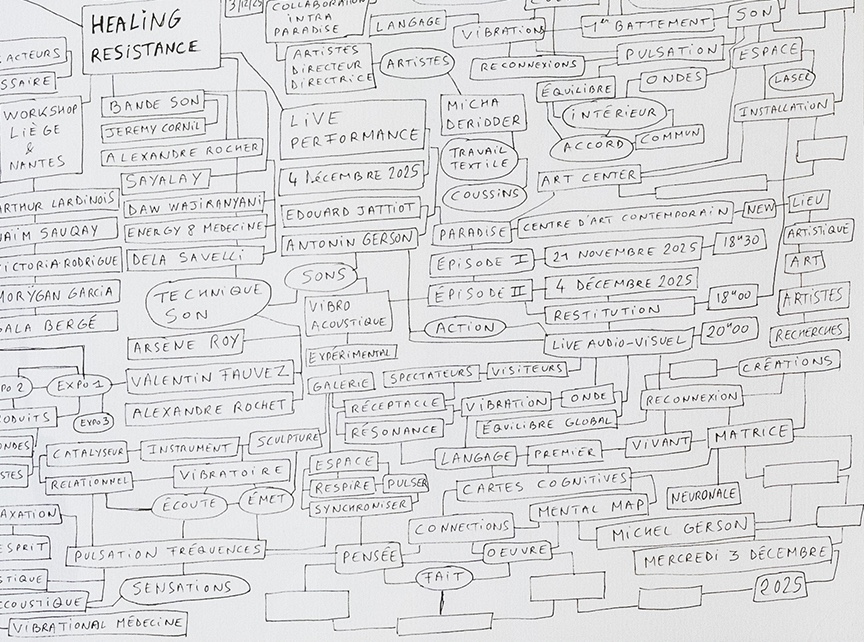 HEALING
RESISTANCE
3/12/25
COLLABORATION
INTRA
PARADISE
LANGAGE
VIBRATION
1ER BATTEMENT
SON
ACTEURS
SSAIRE
ARTISTES
DIRECTEUR
DIRECTRICE
ARTISTES
RECONNEXIONS
PULSATION
ESPACE
LASER
ÉQUILIBRE
ONDES
INTÉRIEUR
INSTALLATION
WORKSHOP
LIÈGE
&
NANTES
BANDE SON
JEREMY CORNIL
ALEXANDRE ROCHER
LIVE
PERFORMANCE
MICHA
DERIDDER
TRAVAIL
TEXTILE
COUSSINS
ACCORD
COMMUN
SAYALAY
4 DÉCEMBRE 2025
ART CENTER
ARTHUR LARDINOIS
DAW WAJIRANYANI
EDOUARD JATTIOT
PARADISE
CENTRE D'ART CONTEMPORAIN
NEW
LIEU
NAÏM SAUQAY
ENERGY 8 MEDECINE
ANTONIN GERSON
ÉPISODE I
21 NOVEMBRE 2025
18H30
ARTISTIQUE
VICTORIA RODRIGUE
DELA SAVELLI
SONS
ART
MORŸGAN GARCIA
TECHNIQUE
SON
VIBRO
ACOUSTIQUE
ÉPISODE II
4 DÉCEMBRE 2025
18H00
ARTISTES
GALA BERGÉ
RESTITUTION
ACTION
ARSÈNE ROY
EXPÉRIMENTAL
LIVE AUDIO-VISUEL
20H00
RECHERCHES
EXPO 1
VALENTIN FAUVEZ
GALERIE
SPECTATEURS
VISITEURS
CRÉATIONS
PO 2
RODUITS
EXPO 3
ALEXANDRE ROCHET
RÉCEPTACLE
VIBRATION
ONDE
RECONNEXION
RÉSONANCE
ÉQUILIBRE GLOBAL
ONDES
CATALYSEUR
INSTRUMENT
SCULPTURE
LANGAGE
PREMIER
VIVANT
MATRICE
STES
RELATIONNEL
VIBRATOIRE
ESPACE
RESPIRE
PULSER
SYNCHRONISER
CARTES COGNITIVES
NEURONALE
ÉCOUTE
ÉMET
AXATION
CONNECTIONS
MENTAL MAP
MICHEL GERSON
ESPRIT
PULSATION FRÉQUENCES
PENSÉE
OEUVRE
MERCREDI 3 DÉCEMBRE
STIQUE
SENSATIONS
FAIT
2025
CCOUSTIQUE
VIBRATIONAL MÉDECINE